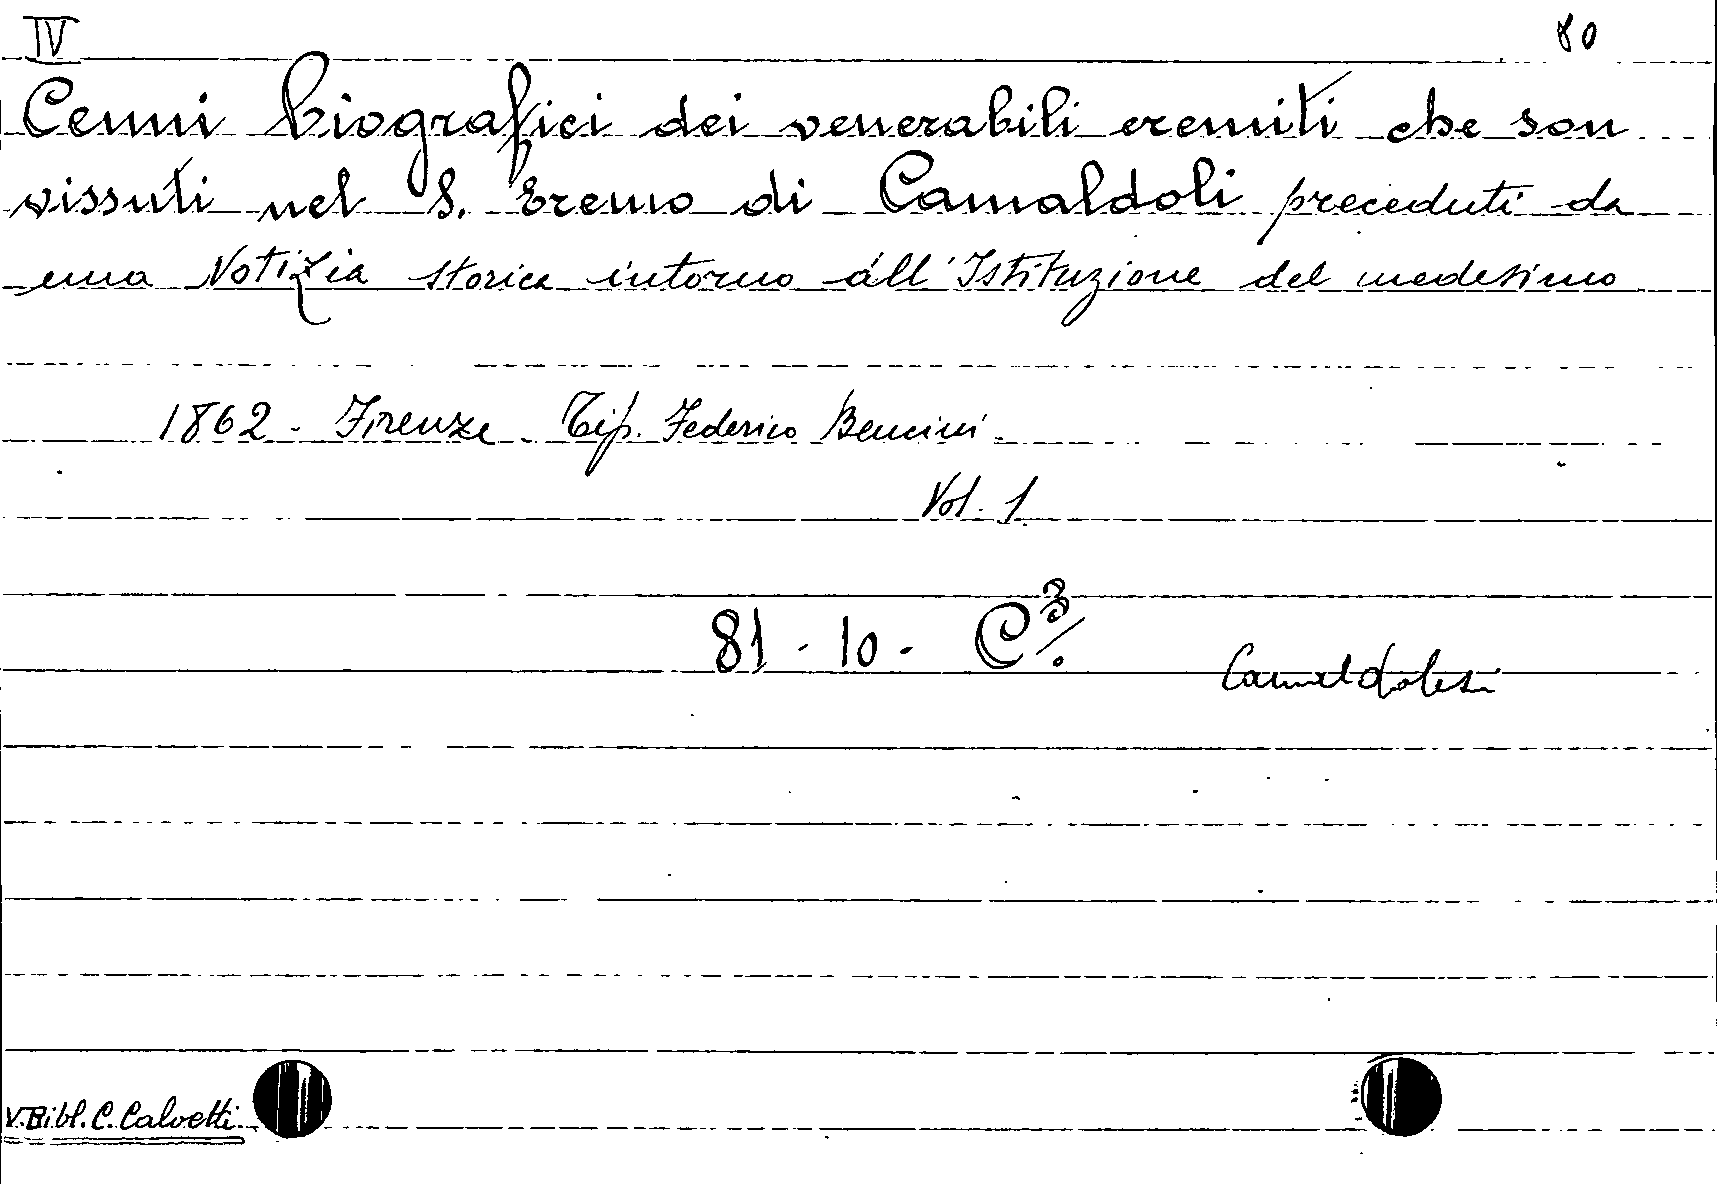 IV 80
Cenni biografici dei venerabili eremiti che son
vissuti nel S. Eremo di Camaldoli preceduti da
una Notizia storica intorno all'Istituzione del medesimo
1862 - Firenze - Tip. Federico Bencini.
Vol. 1
81 - 10 - C 3/.
Camaldolesi
V. Bibl. C. Calvetti